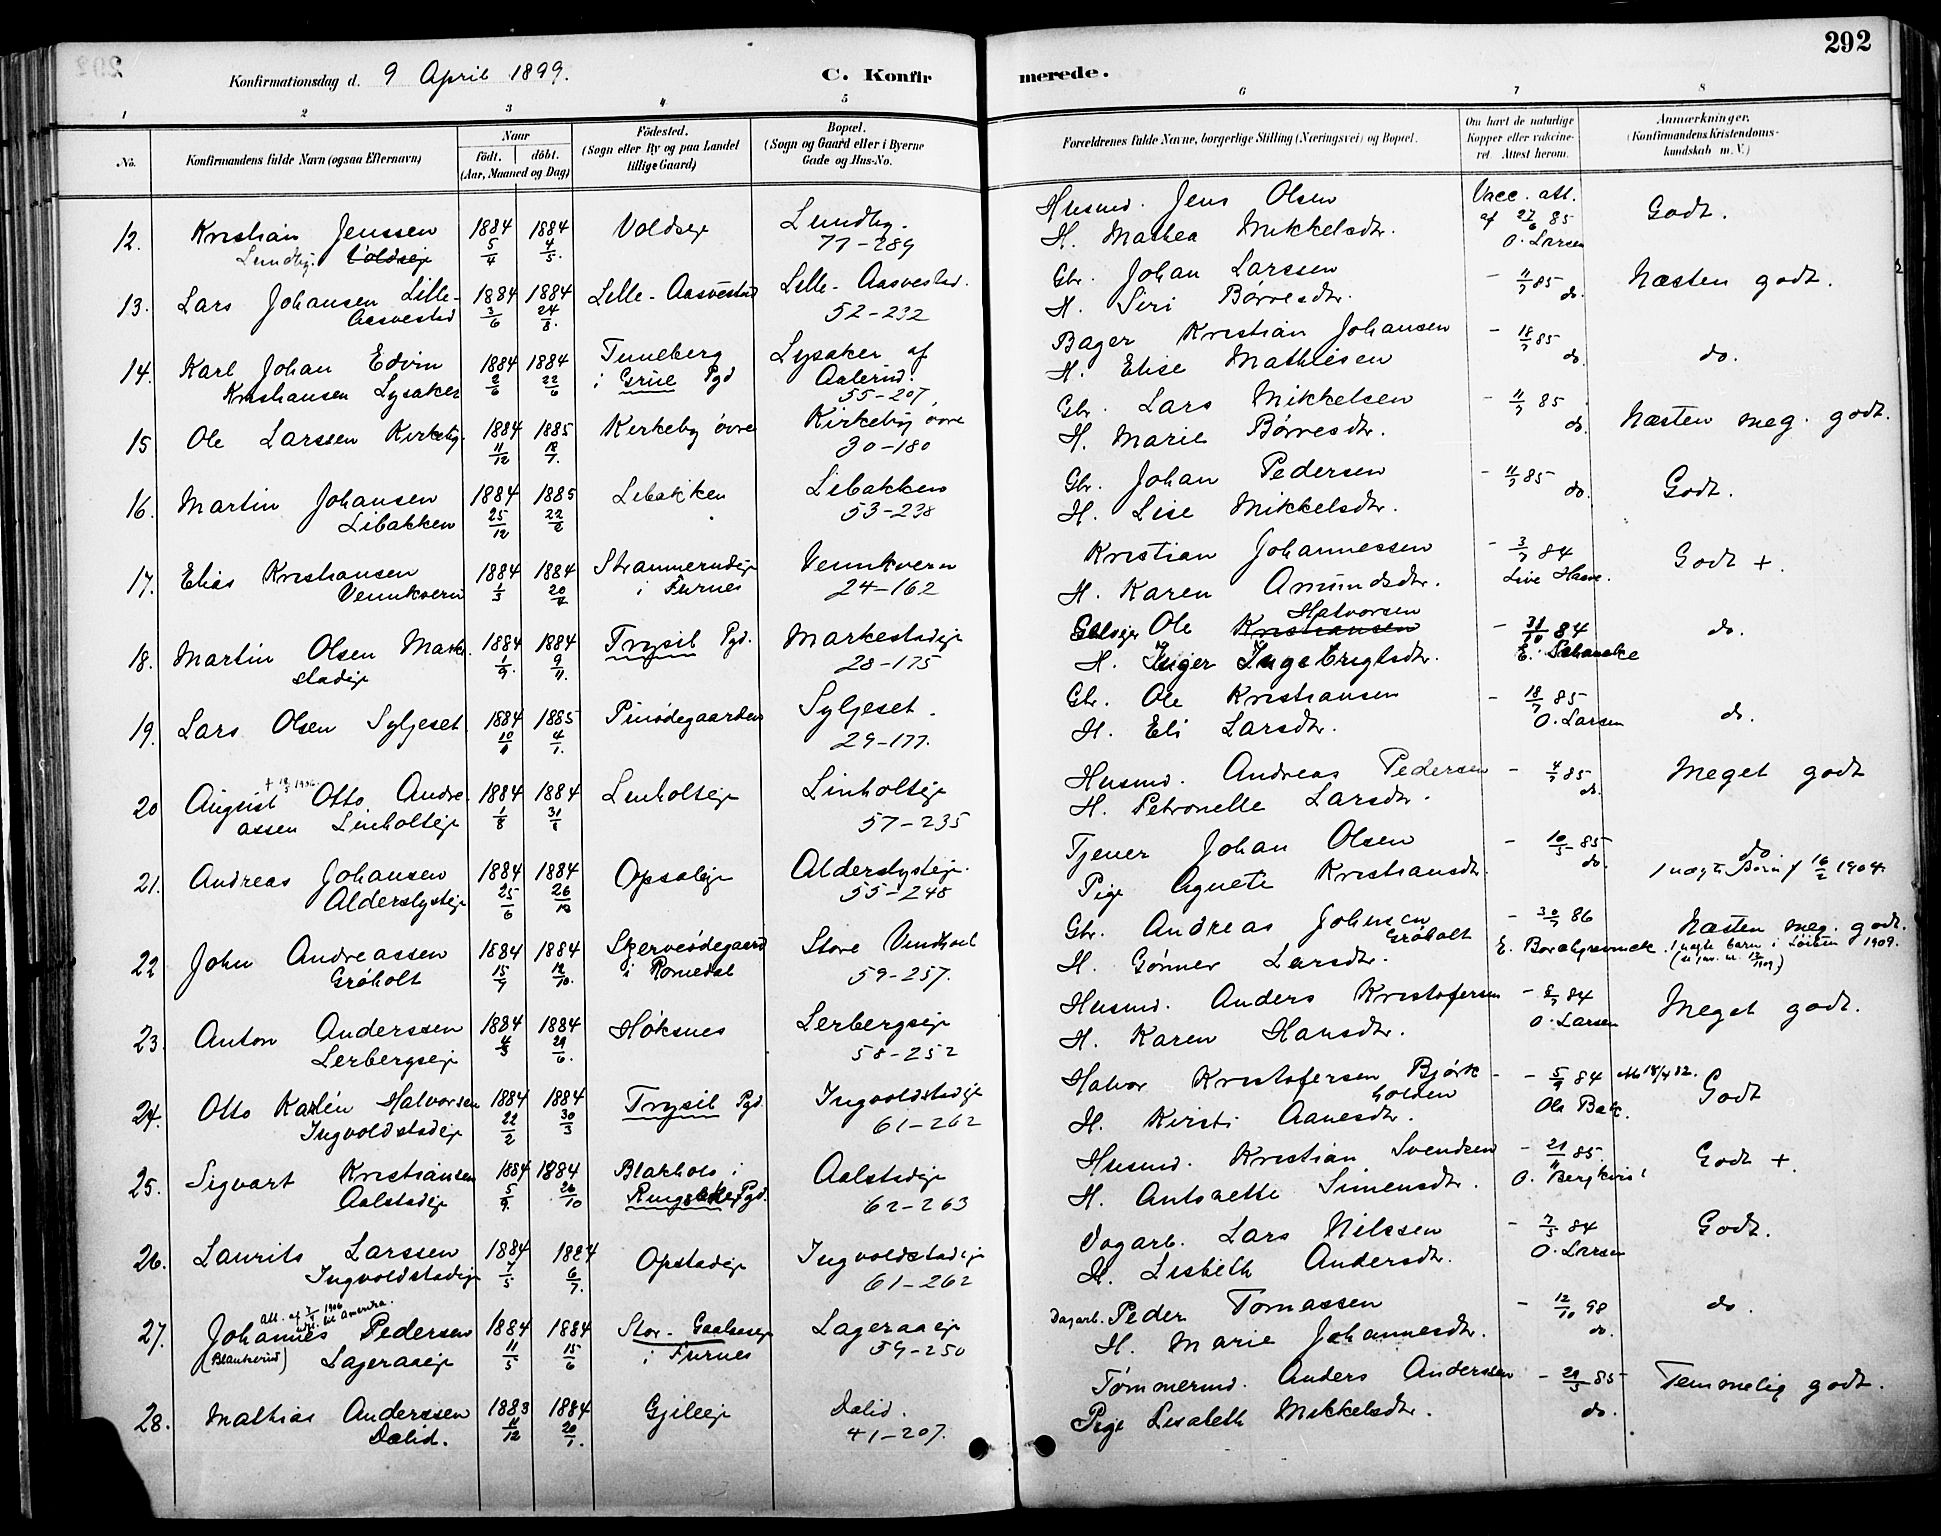 292
Konfirmationsdag d. 9 April 1899.
C. Konfirmerede.
1 2 3 4 5 6 7 8
No.
Konfirmandens fulde Navn (ogsaa Efternavn)
Naar
födt. döbt.
(Aar, Maaned og Dag)
Födested.
(Sogn eller By og paa Landet
tillige Gaard)
Bopæl.
(Sogn og Gaard eller i Byerne
Gade og Hus-No.
Forældrenes fulde Navne, borgerlige Stilling (Næringsvei) og Bopæl.
Om havt de naturlige
Kopper eller vakcine-
ret. Attest herom.
Anmærkninger.
(Konfirmandens Kristendoms-
kundskab m.V.)
12. Kristian Jenssen 1884 1884 Voldseje Lundby. Husmd. Jens Olsen Vacc. att. Godt.
Lundby. Voldseje 5/4 4/5. 77-289 H. Mathea Mikkelsdtr. af 27/6 85
O. Larsen
13. Lars Johansen Lille- 1884 1884 Lille-Aasvestad Lille-Aasvestad. Gbr. Johan Larssen - 11/7 85 Næsten godt.
Aasvestad 3/6 24/8. 52-232 H. Siri Børresdtr. do.
14. Karl Johan Edvin 1884 1884 Tuneberg Lysaker af Bager Kristian Johansen - 18/7 85 do.
Kristiansen Lysaker 2/6 22/6 i Grue Pgd Aalerud. H. Elise Mathiesen do.
55-207,
15 Ole Larssen Kirkeby. 1884 1885 Kirkeby övre Kirkeby övre Gbr. Lars Mikkelsen - 11/7 85 Næsten meg. godt.
11/12 18/1. 30-180 H. Marie Børresdtr. do.
16. Martin Johansen 1884 1885 Libakken Libakken Gbr. Johan Pedersen - 11/7 85 Godt.
Libakken 25/12 22/2 53-238 H. Lise Mikkelsdtr. do.
17. Elias Kristiansen 1884 1884 Strammerudeje Vennkvern Kristian Johannessen - 3/7 84 Godt +.
Vennkvern 1/3 20/4 i Furnes 24-162 H. Karen Amundsdtr.
18. Martin Olsen Marke- 1884 1884 Trysil Pgd. Markestadeje Ole Kristiansen Halvorsen - 31/10 84 do.
stadeje 1/9. 9/11. 28-175 H. Inger Ingebrigtsdtr.
19. Lars Olsen Syljeset. 1884 1885 Pinsødegaarden Syljeset. Gbr. Ole Kristiansen - 18/7 85 do.
4/1. 29-177. H. Eli Larsdtr. O. Larsen
20 August Otto Andre- 1884 1884 Linholteje Linholteje Husmd. Andreas Pedersen - 4/7 85 Meget godt
assen Linholteje 1/8 31/8 57-235 H. Petronelle Larsdtr. do.
21. Andreas Johansen 1884 1884 Opsaleje Alderslysteje. Tjener Johan Olsen - 10/5 85 do
Alderslysteje 25/6 26/10 55-248 Pige Agnete Kristiansdtr. do. 1 uægte Barn f 16/2 1904.
22 John Andreassen 1884 1884 Skjerveødegaard Store Vindhol Gbr. Andreas Johnsen Grøholt - 30/7 86 Næsten meg. godt.
Grøholt 15/7 12/10. i Romedal 59-257. H. Gønner Larsdtr. 1 uægte barn i Löiten 1909.
23. Anton Anderssen 1884 1884 Høksnes Lerbergseje Husmd. Anders Kristofersen - 2/7 84 Meget godt.
Lerbergseje 4/3 29/6. 58-252 H. Karen Hansdtr. O. Larsen
24. Otto Karlén Halvorsen 1884 1884 Trysil Pgd. Ingvoldstadeje Halvor Kristofersen Björk- - 5/9 84 Godt
Ingvoldstadeje 22/2 30/3 61-262 H. Kirsti Aanesdtr. holden Ole Bak.
25. Sigvart Kristiansen 1884 1884 Blakhols i Aalstadeje Husmd. Kristian Svendsen - 21/11 85. Godt +.
Aalstadeje 5/9. 26/10 Ringsaker Pgd. 62-263 H. Antonette Simensdtr. O. Bergkvist
26. Laurits Larssen 1884 1884 Opstadeje Ingvoldstadeje Dagarb. Lars Nilssen - 7/5 84 Godt.
Ingvoldstadeje 7/5 6/7. 61-262 H. Lisbeth Andersdtr. O. Larsen
att. af 1906 til Amerika.
27. Johannes Pedersen 1884 1884 Stor-Gaalaseje Lageraaeje Dagarb. Peder Tomassen - 12/10 98 do.
(Blankerud) Lageraaeje 11/5 15/6 i Furnes 59-250 H. Marie Johannesdtr. do.
28. Mathias Anderssen 1883 1884 Gjileeje Dalid. Tömmermd. Anders Anderssen - 29/5 85 Temmelig godt.
Dalid. 11/12 20/1. 41-207. Pige Lisabeth Mikkelsdtr. do.